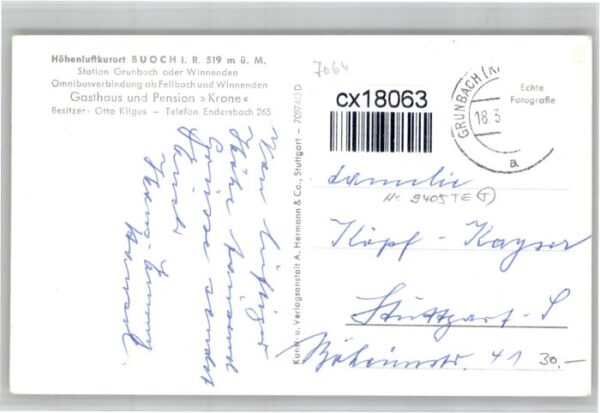 Höhenluftkurort BUOCH i. R. 519 m ü. M.
Station Grunbach oder Winnenden
Omnibusverbindung ab Fellbach und Winnenden
Gasthaus und Pension »Krone«
Besitzer: Otto Kilgus — Telefon Endersbach 265
Von luftiger
Höhe
Grüsse sendet
Kunst- u. Verlagsanstalt A. Hermann & Co., Stuttgart - 70974/3 D
7064
cx18063
GRUNBACH (R
18.3
a
Echte
Fotografie
Familie
Nr 9405 TE T
Köpf-Kayser
Stuttgart-S
41
30.-